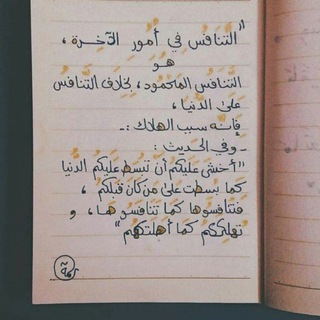 "التَّنَافُس في أُمُورِ الآخِرة ،
هُوَ
التَّنَافُس المَحمُود، بِخِلَاف التَّنَافُس
عَلَى الدُّنيَا ،
فإنَّه سبب الهلاك :-
- وفي الحَديث :
"أخشَى عَلَيكُم أن تُبسَط عَليكُم الدُّنيا
كَمَا بسطت عَلى مَن كَان قَبلَكُم ،
فَتَنَافَسُوهَا كَمَا تَنَافَسُوهَا ، و
تُهلِكَكُم كَما أهلَكَتهُم"